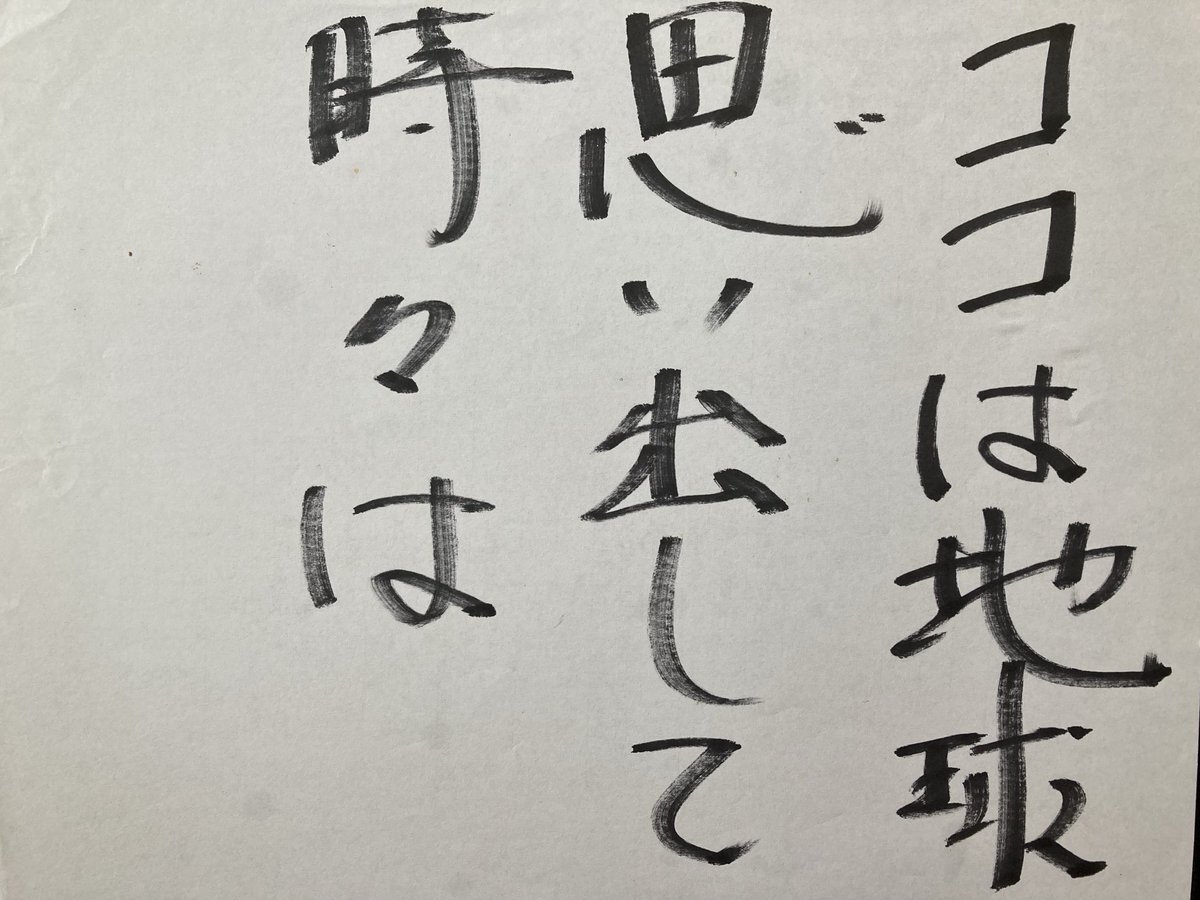 ココは地球
思い出して
時々は